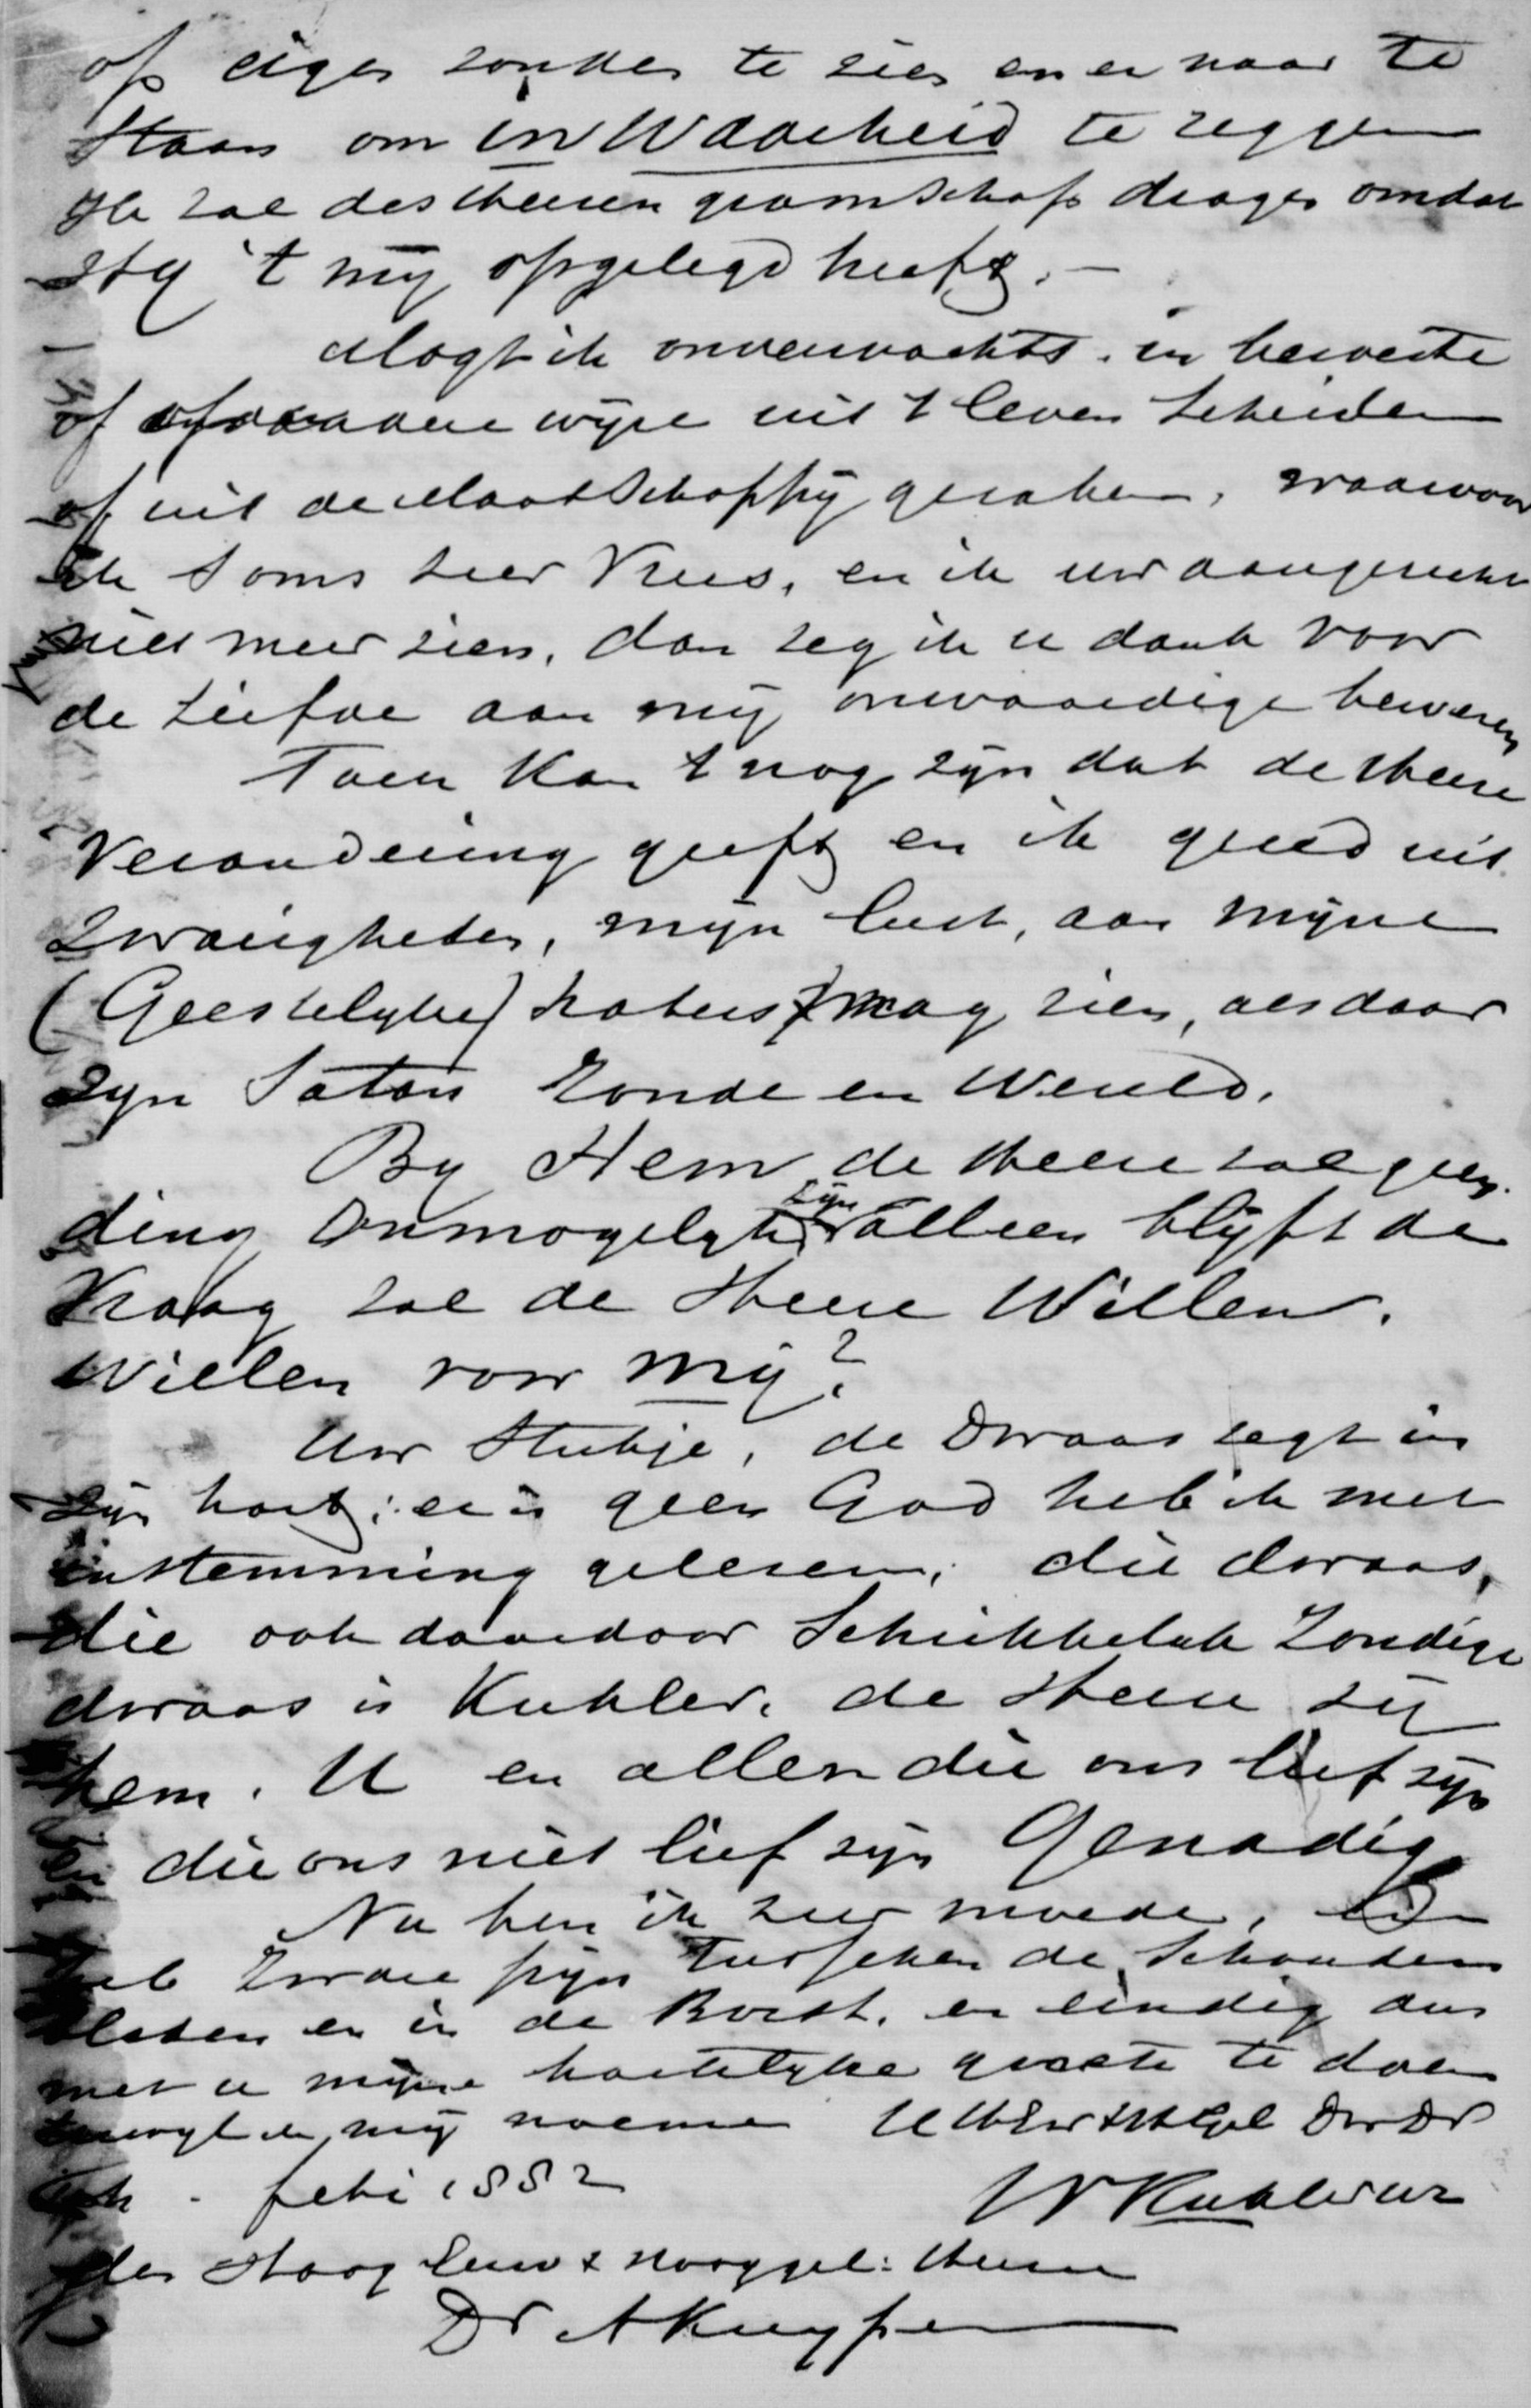 op eigen zonden te zien en er naar te
staan om in Waarheid te zeggen
Ik zal des Heeren gramschap dragen omdat
Hij 't mij opgelegd heeft. —
Mogt ik onverwachts in beroerte
of op andere wijze uit 't leven scheiden
of uit de Maatschappij geraken, waarvoor
ik soms zeer vrees, en ik uw aangezicht
niet meer zien, dan zeg ik u dank voor
de Liefde aan mij onwaardige bewezen
Toch kan 't nog zijn dat de Heere
Verandering geeft en ik gered uit
Zwarigheden, mijn lust, aan mijne
(Geestelyke) haters mag zien, als daar
zyn Satan Zonde en Wereld.
By Hem de Heere zal geen
ding Onmogelyk zijn alleen blijft de
Vraag zal de Heere Willen.
Willen voor mij?
Uw Stukje, de Dwaas zegt in
zijn hart; er is geen God heb ik met
instemming gelezen, die dwaas,
die ook daardoor Schrikkelyk Zondige
dwaas is Kuhler. de Heere zij
hem. U en allen die ons lief zijn
en die ons niet lief zijn Genadig
Nu ben ik zeer moede, en
heb zware pijn tusschen de Schouder
bladen en in de Borst. en eindig dus
met u mijne hartelyke groete te doen
terwyl ik mij noeme U DwDr
febr 1882 W Kuhler
den Hoog Eerw & Hooggel: Heere
Dr A Kuyper